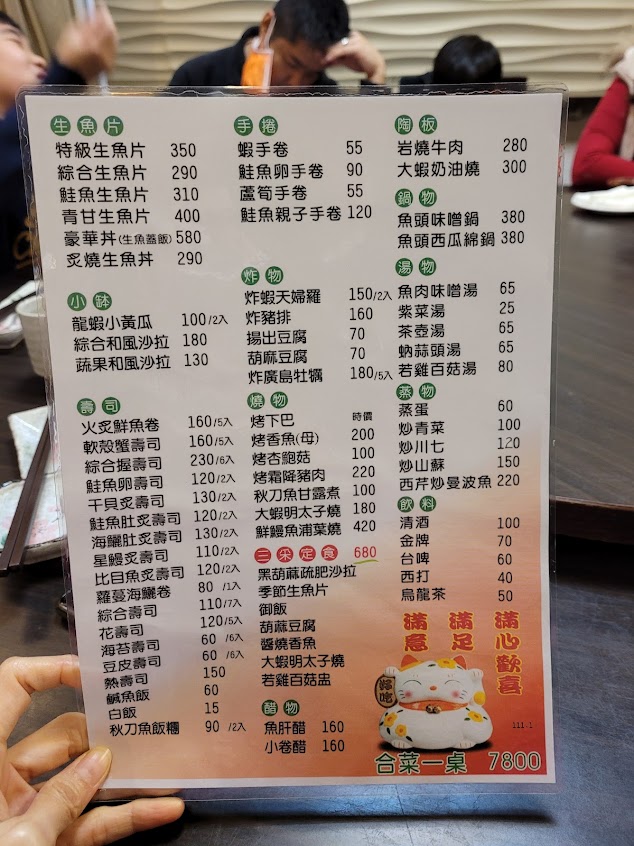 生魚片
特級生魚片 350
綜合生魚片 290
鮭魚生魚片 310
青甘生魚片 400
豪華丼(生魚蓋飯) 580
炙燒生魚丼 290
小缽
龍蝦小黃瓜 100/2入
綜合和風沙拉 180
蔬果和風沙拉 130
壽司
火炙鮮魚卷 160/5入
軟殼蟹壽司 160/5入
綜合握壽司 230/6入
鮭魚卵壽司 120/2入
干貝炙壽司 130/2入
鮭魚肚炙壽司 120/2入
海鱺肚炙壽司 130/2入
星鰻炙壽司 110/2入
比目魚炙壽司 120/2入
蘿蔓海鱺卷 80 /1入
綜合壽司 110/7入
花壽司 120/5入
海苔壽司 60 /6入
豆皮壽司 60 /6入
熱壽司 150
鹹魚飯 60
白飯 15
秋刀魚飯糰 90 /2入
手捲
蝦手卷 55
鮭魚卵手卷 90
蘆筍手卷 55
鮭魚親子手卷 120
炸物
炸蝦天婦羅 150/2入
炸豬排 160
揚出豆腐 70
胡麻豆腐 70
炸廣島牡犡 180/5入
燒物
烤下巴 時價
烤香魚(母) 200
烤杏鮑菇 100
烤霜降豬肉 220
秋刀魚甘露煮 100
大蝦明太子燒 180
鮮鰻魚浦葉燒 420
三采定食 680
黑胡蔴疏肥沙拉
季節生魚片
御飯
胡蔴豆腐
醬燒香魚
大蝦明太子燒
若雞百菇盅
醋物
魚肝醋 160
小卷醋 160
陶板
岩燒牛肉 280
大蝦奶油燒 300
鍋物
魚頭味噌鍋 380
魚頭西瓜綿鍋 380
湯物
魚肉味噌湯 65
紫菜湯 25
茶壺湯 65
蚋蒜頭湯 65
若雞百菇湯 80
蒸物
蒸蛋 60
炒青菜 100
炒川七 120
炒山蘇 150
西芹炒曼波魚 220
飲料
清酒 100
金牌 70
台啤 60
西打 40
烏龍茶 50
滿心歡喜
滿足
滿意
111.1
合菜一桌 7800